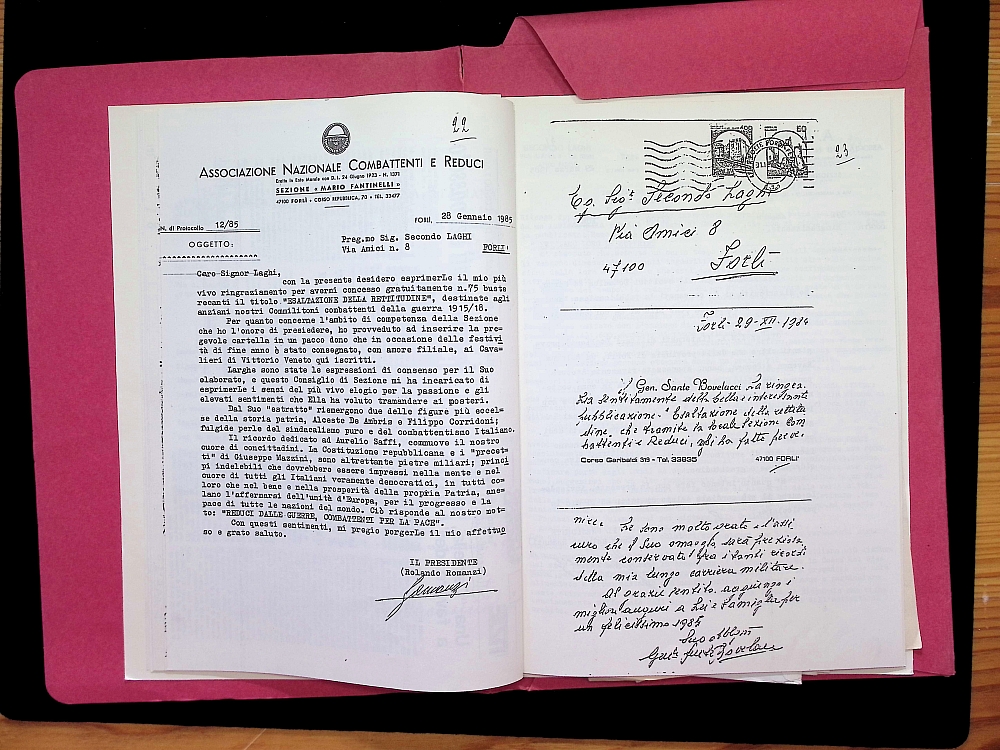 22
ASSOCIAZIONE NAZIONALE COMBATTENTI E REDUCI
Eretta in Ente Morale con D. L. 24 Giugno 1923 - N. 1371
SEZIONE « MARIO FANTINELLI »
47100 FORLÌ • CORSO REPUBBLICA, 70 • TEL. 33477
N. di Protocollo 12/85
FORLÌ, 28 Gennaio 1985
OGGETTO:
Preg.mo Sig. Secondo LAGHI
Via Amici n. 8 FORLI'
Caro Signor Laghi,
con la presente desidero esprimerLe il mio più
vivo ringraziamento per averni concesso gratuitamente n.75 buste
recanti il titolo "ESALTAZIONE DELLA RETTITUDINE", destinate agli
anziani nostri Commilitoni combattenti della guerra 1915/18.
Per quanto concerne l'ambito di competenza della Sezione
che ho l'onore di presiedere, ho provveduto ad inserire la pre-
gevole cartella in un pacco dono che in occasione delle festivi
tà di fine anno è stato consegnato, con amore filiale, ai Cava-
lieri di Vittorio Veneto qui iscritti.
Larghe sono state le espressioni di consenso per il Suo
elaborato, e questo Consiglio di Sezione mi ha incaricato di
esprimerLe i sensi del più vivo elogio per la passione e gli
elevati sentimenti che Ella ha voluto tramandare ai posteri.
Dal Suo "estratto" riemergono due delle figure più eccel-
se della storia patria, Alceste De Ambris e Filippo Corridoni;
fulgide perle del sindacalismo puro e del combattentismo Italiano.
Il ricordo dedicato ad Aurelio Saffi, commuove il nostro
cuore di concittadini. La Costituzione repubblicana e i "precet-
ti" di Giuseppe Mazzini, sono altrettante pietre miliari; princi
pi indelebili che dovrebbero essere impressi nella mente e nel
cuore di tutti gli Italiani veramente democratici, in tutti co-
loro che nel bene e nella prosperità della propria Patria, ane-
lano l'affermarsi dell'unità d'Europa, per il progresso e la
pace di tutte le nazioni del mondo. Ciò risponde al nostro mot-
to: "REDUCI DALLE GUERRE, COMBATTENTI PER LA PACE".
Con questi sentimenti, mi pregio porgerLe il mio affettuo
so e grato saluto.
IL PRESIDENTE
(Rolando Romanzi)
Romanzi
23
Eg. Sigr Secondo Laghi
Via Amici 8
47100 Forlì
Forlì - 29 - XII - 1984
il Gen. Sante Bovelacci La ringra-
zia sentitamente della bella e interessante
pubblicazione "Esaltazione della rettitu
dine, che tramite la locale sezione Com
battenti e Reduci, mi ha fatto perve-
Corso Garibaldi 319 - Tel. 33835 47100 FORLI'
nire. Le sono molto grato e l'assi
curo che il Suo omaggio sarà preziosa
mente conservato tra i tanti ricordi
della mia lunga carriera militare.
Al grazie sentito, aggiungo i
migliori auguri a Lei e Famiglia per
un felicissimo 1985
Suo
Sante Bovelacci